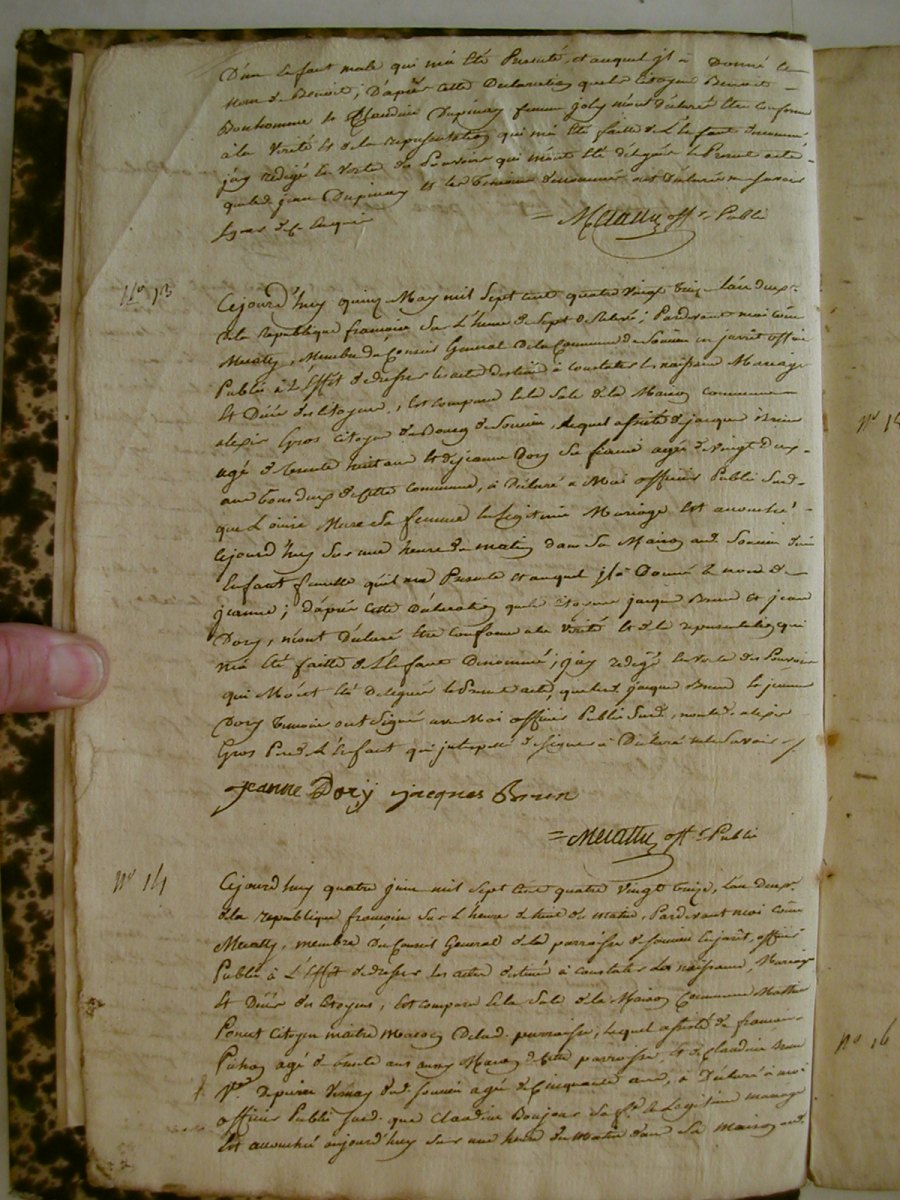 D'un Enfant male qui m'a été Presenté, et auquel jl a Donné le
nom de Benoit, D'après cette Declaration que le Citoyen Benoit
Bonhomme et Claudine Dupinay femme joly m'ont déclaré etre conforme
à la verité et de la representation qui m'a été faitte de l'Enfant denommé
j'ay redigé En vertu des Pouvoirs qui m'ont été délégués le Present acte
que led. jean Dupinay et les temoins denommés ont Déclaré ne savoir
signer de ce Enquis
= Meiatty off. Public
No 13
Cejourd'huy quinze May mil sept cent quatre vingt treize l'an deux
de la republique françoise sur L'heure de sept de relevé; Pardevant moi Côme
Meiatty, Membre du Conseil General de la Commune de Soucieu en jarêt officier
Public a L'Effêt de dresser les actes destinés à constater les naissance Mariage
Et Décès des Citoyens, Est comparu En la Sale de la Maison commune
alexis Gros Citoyen du Bourg de Soucieu, lequel assisté de jacque Brun
agé de trente huit ans Et de jeanne Dory sa femme agée de vingt deux
ans tous deux de Cette commune, à Déclaré a Moi officier Public Sud.
que Loüise Mure sa femme En Legitime Mariage Est accouchée
Cejourd'huy sur une heure du matin dans sa Maison aud. Soucieu d'un
Enfant femelle quil ma Presenté et auquel jl a Donné le nom de
jeanne; d'après cette Déclaration que le Citoyens jacque Brun et jeanne
Dory, m'ont Déclaré être conforme a la vérité Et de la representation qui
m'a été faitte de l'Enfant Denommé; j'ay redigé En vertu des Pouvoirs
qui M'ont été Delegués le Present acte, que lesd. jacque Brun Et jeanne
Dory temoins ont Signé avec Moi officier Public Sud, non led. alexis
Gros Pere de L'Enfant qui jnterpellé de signer a Déclaré ne le Savoir
jeanne Dorÿ jacques Brun
= Meiatty off. Public
No 14
Cejourd'huy quatre juin mil sept cent quatre vingt treize, l'an deux
de la republique françoise sur L'heure de huit du matin, Pardevant moi Côme
Meiatty, membre du Conseil General de la parroisse de soucieu En jarêt, officier
Public à L'Effêt de dresser les actes destinés à constater les naissance, Mariage
Et Décès des Citoyens, Est comparu En la Sale de la Maison Commune Mathieu
Poncet Citoyen maitre Maçon Delad. parroisse, lequel assisté de françois
agé de trente ans aussy Maçon de Cette parroisse, Et de Claudine Brun
Ve. de pierre Vernay dud. Soucieu agée de Cinquante ans, a Déclaré à moi
officier Public Sud. que Claudine Boujour sa fe. En Legitime mariage
Est accouchée aujourd'huy sur une heure du Matin dans sa maison aud.
No 16